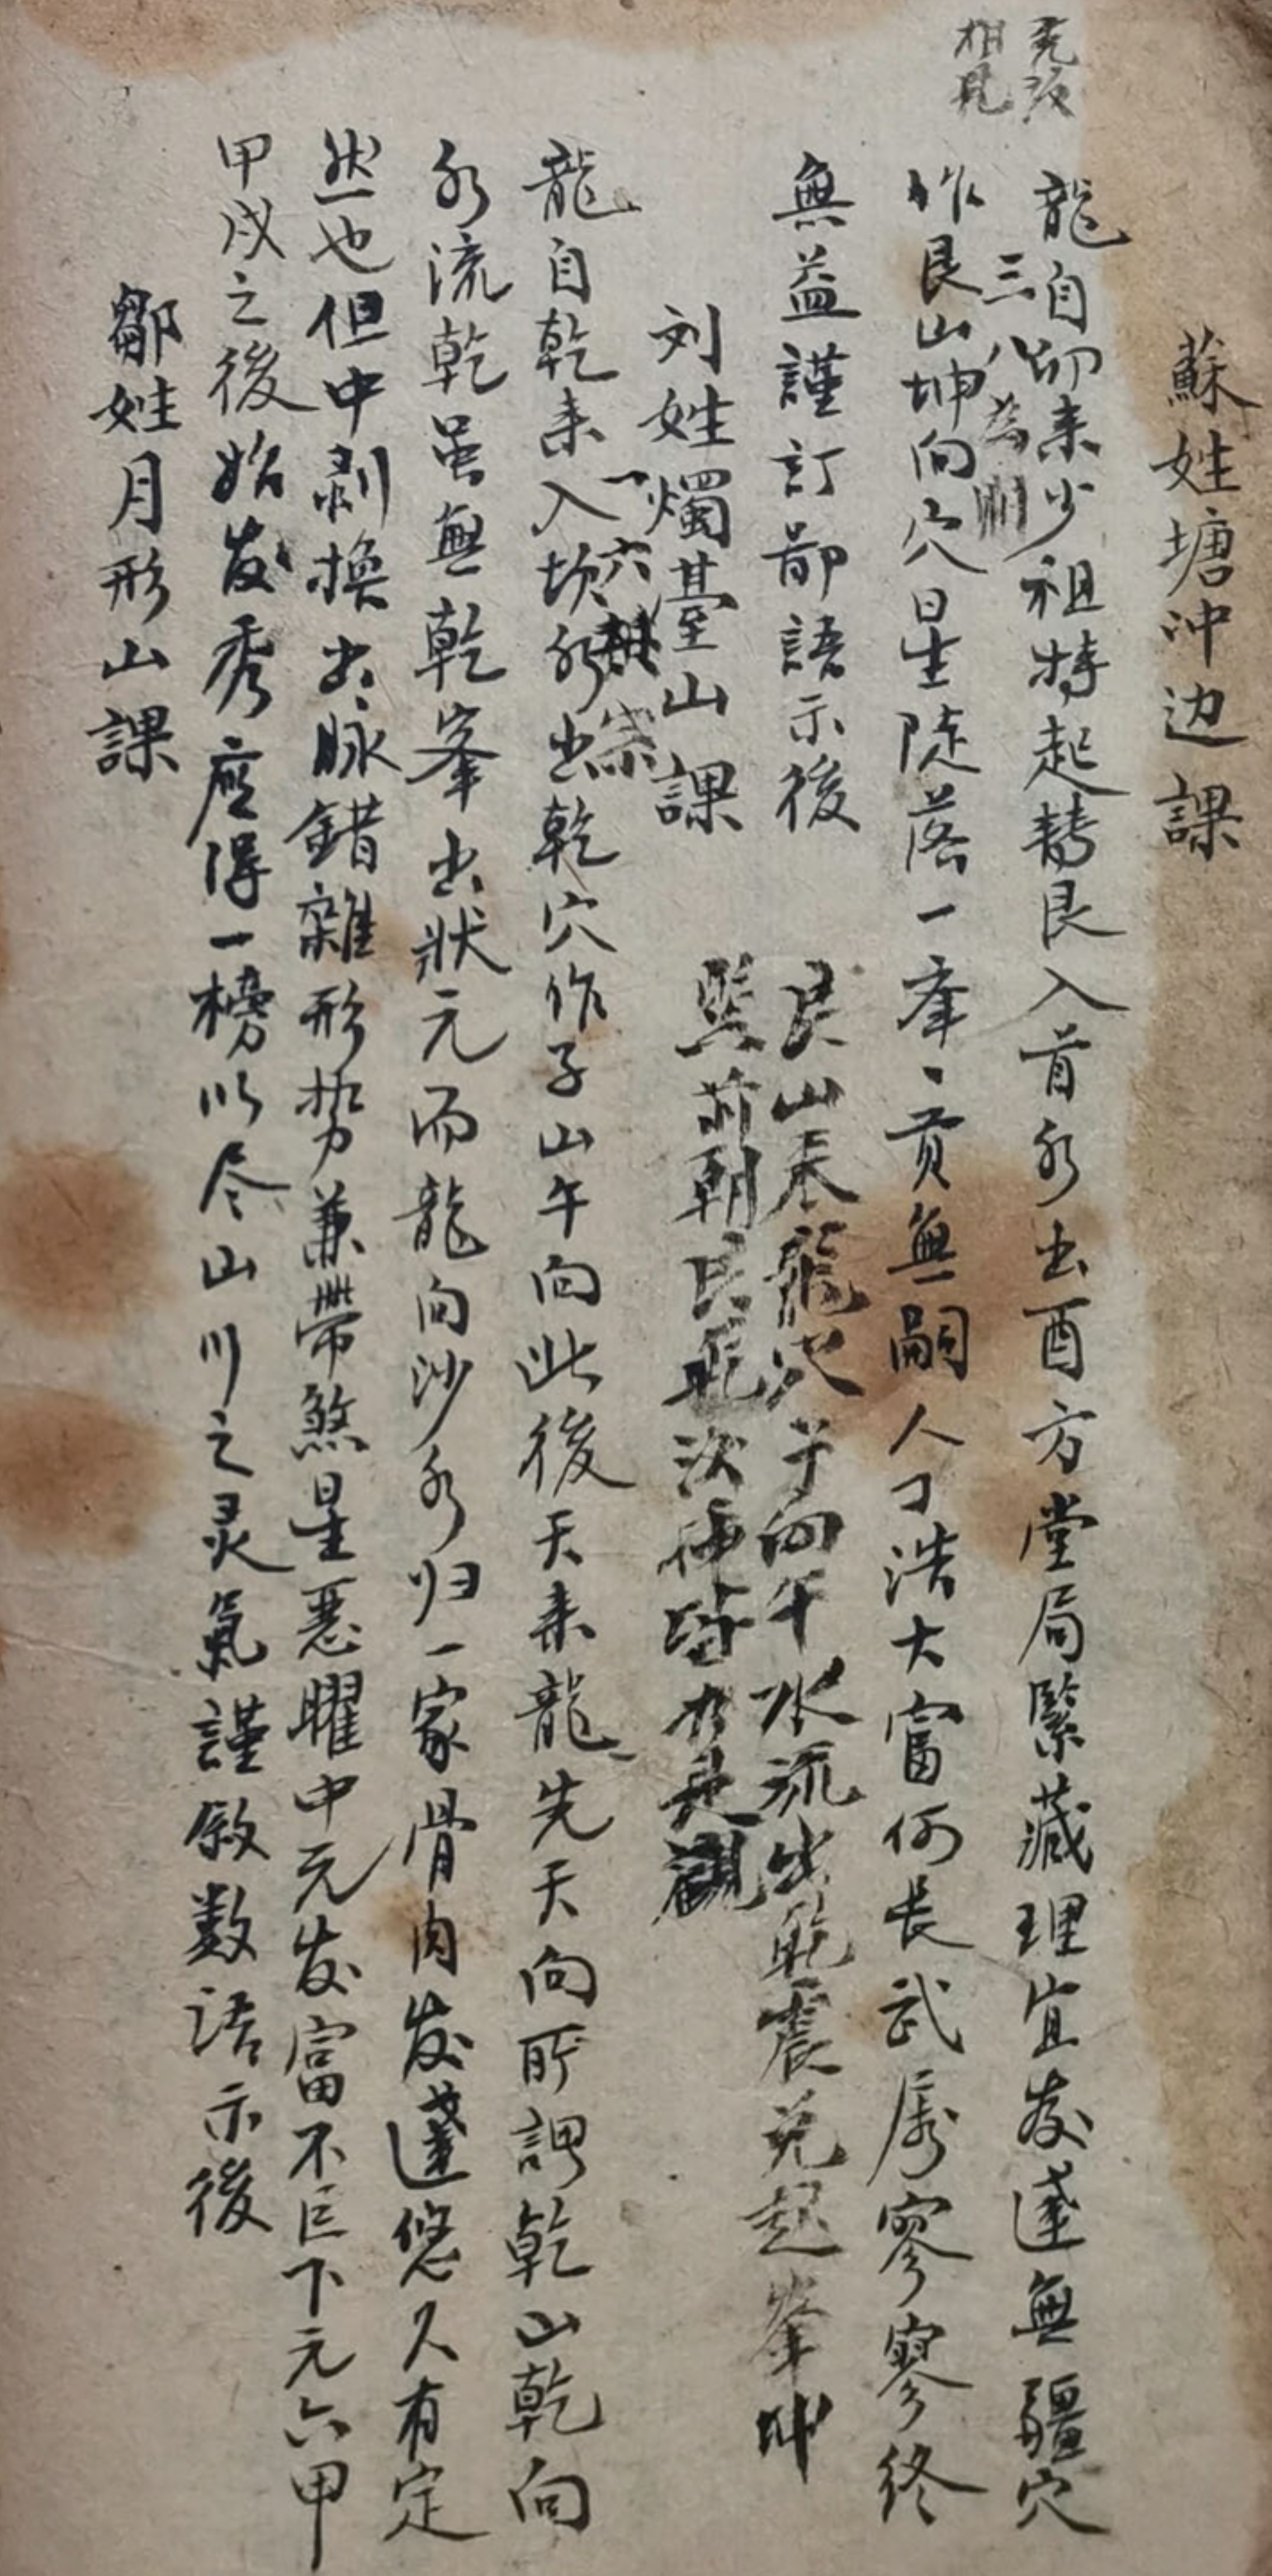 蘇姓塘冲边課
龍自卯来少祖特起转艮入首水出酉方堂局緊藏理宜发達無疆穴
三八為朋
作艮山坤向穴星陡落一峯、贡無嗣人丁浩大富何長武孱寥寥终
無益謹訂鄙語示後
艮山来龍穴子向午水流出乾震兑起峯坤
艮
刘姓燭臺山課
一六共宗
龍自乾来入坎水出乾穴作子山午向此後天来龍先天向所謂乾山乾向
水流乾虽無乾峯出狀元而龍向沙水归一家骨肉发達悠久有定
然也但中剥换出脉錯雜形势兼帶煞星惡曜中元发富不巨下元六甲
甲戌之後始发秀应得一榜以尽山川之灵氣謹叙数语示後
鄒姓月形山課